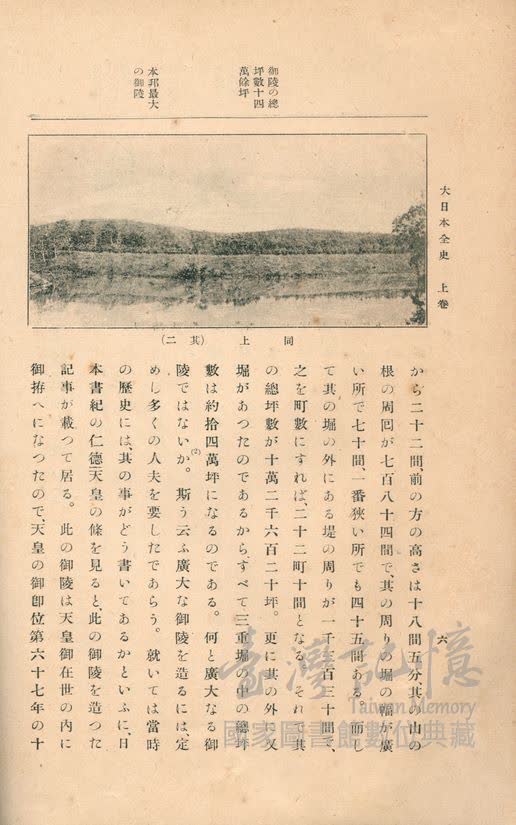 大日本全史 上卷
六
御陵の總
坪數十四
萬餘坪
本邦最大
の御陵
同上 (其二)
から二十二間、前の方の高さは十八間五分、其の山の
根の周回が七百八十四間で、其の周りの堀の幅が廣
い所で七十間、一番狹い所でも四十五間ある。而し
て其の堀の外にある堤の周りが一千三百三十間で、
之を町數にすれば、二十二町十間となる。それで其
の總坪數が十萬二千六百二十坪。更に其の外に又
堀があつたのであるから、すべて三重堀の中の總坪
數は約拾四萬坪になるのである。何と廣大なる御
陵ではないか。(2)斯う云ふ廣大な御陵を造るには、定
めし多くの人夫を要したであらう。就いては當時
の歷史には、其の事がどう書いてあるかといふに、日
本書紀の仁德天皇の條を見ると、此の御陵を造つた
記事が載つて居る。此の御陵は天皇御在世の内に
御拵へになつたので、天皇の御卽位第六十七年の十
臺灣記憶
Taiwan Memory
國家圖書館數位典藏